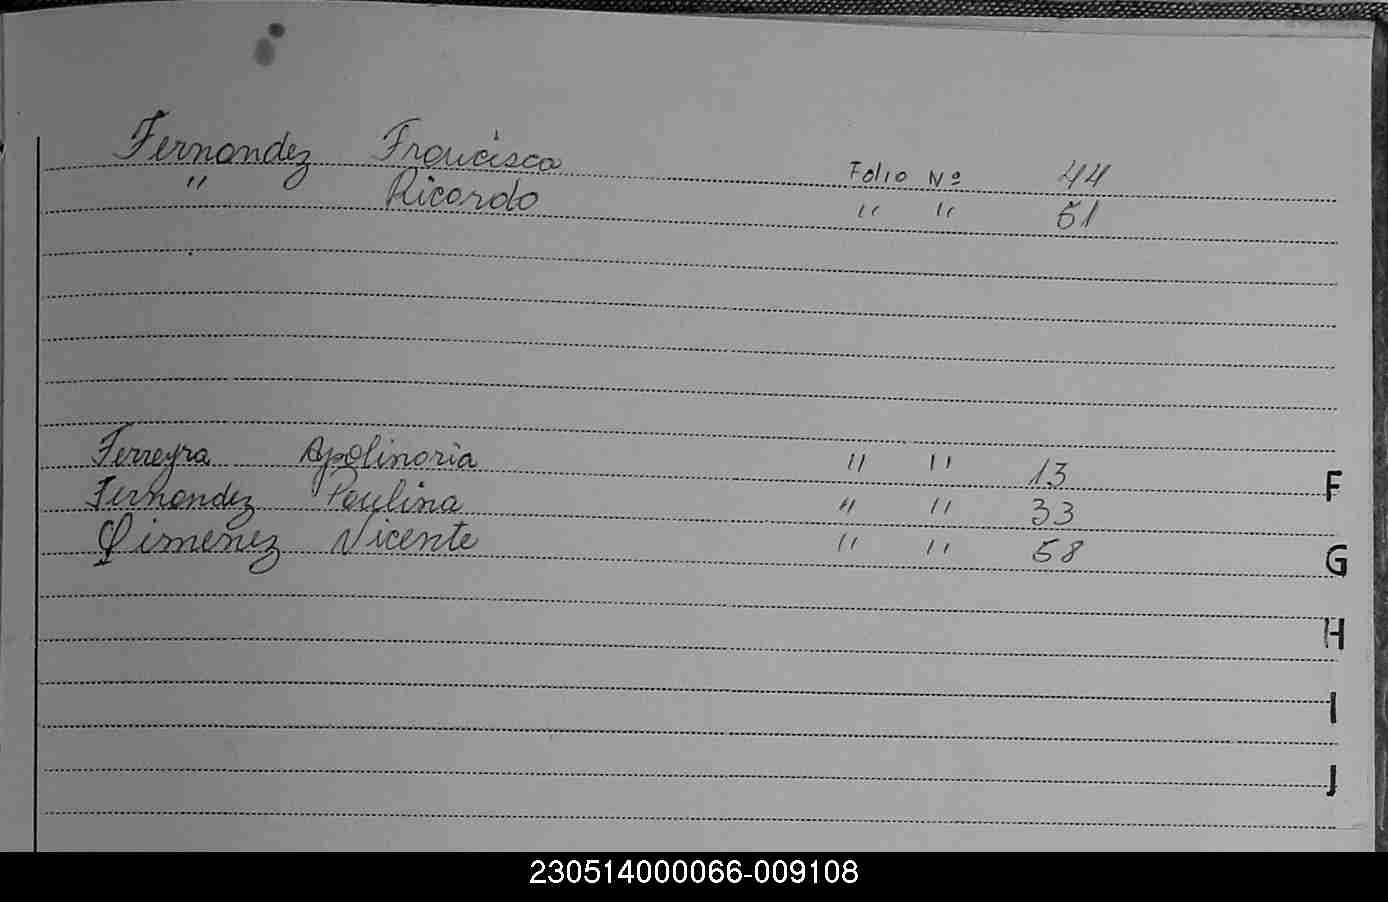 Fernandez Francisca Folio Nº 44
" Ricardo " " 51
Ferreyra Apolinaria " " 13
Fernandez Paulina " " 33
Gimenez Vicente " " 58
F
G
H
I
J
230514000066-009108